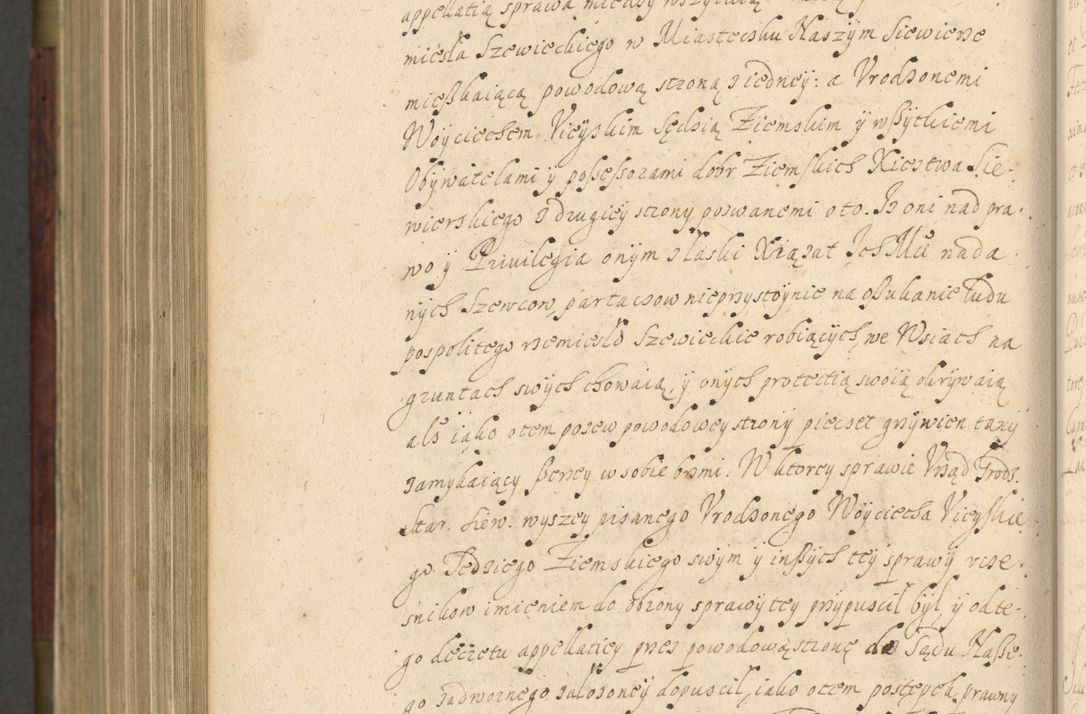 appellatią sprawa między wszytkią
miesła Szewieckiego w Miasteczku Naszym Siewierze
mieszkaiącą powodową stroną z iedney: a Vrodzonemi
Woyciechem Vieyskim Sędzią Ziemskim y wszytkiemi
Obywatelami y possessorami dobr Ziemskich Xięstwa Sie-
wierskiego z drugiey strony pozwanemi o to. Iz oni nad pra-
wo y Priuilegia onym z łaski Xiąząt Ich Mći nada-
nych Szewcow, partaczow nieprzystoynie na oszukanie ludu
pospolitego rzemiesło Szewieckie robiących, we Wsiach na
gruntach swych chowaią, y onych protectią swoią okrywaią
als iako o tem pozew powodowey strony pięcset grzywien taxy
zamykaiący szerzey w sobie brzmi. W ktorey sprawie Vrząd Grodz.
Star. Siew. wyszey pisanego Vrodzonego Woyciecha Vieyskie-
go Sędziego Ziemskiego swym y inszych tey sprawy vcze-
snikow imieniem do obrony sprawy tey przypuscił był y od te-
go decretu appellatiey przez powodową stronę do Sądu Nasze-
go zadwornego załozoney dopuscił, iako o tem postępek prawny